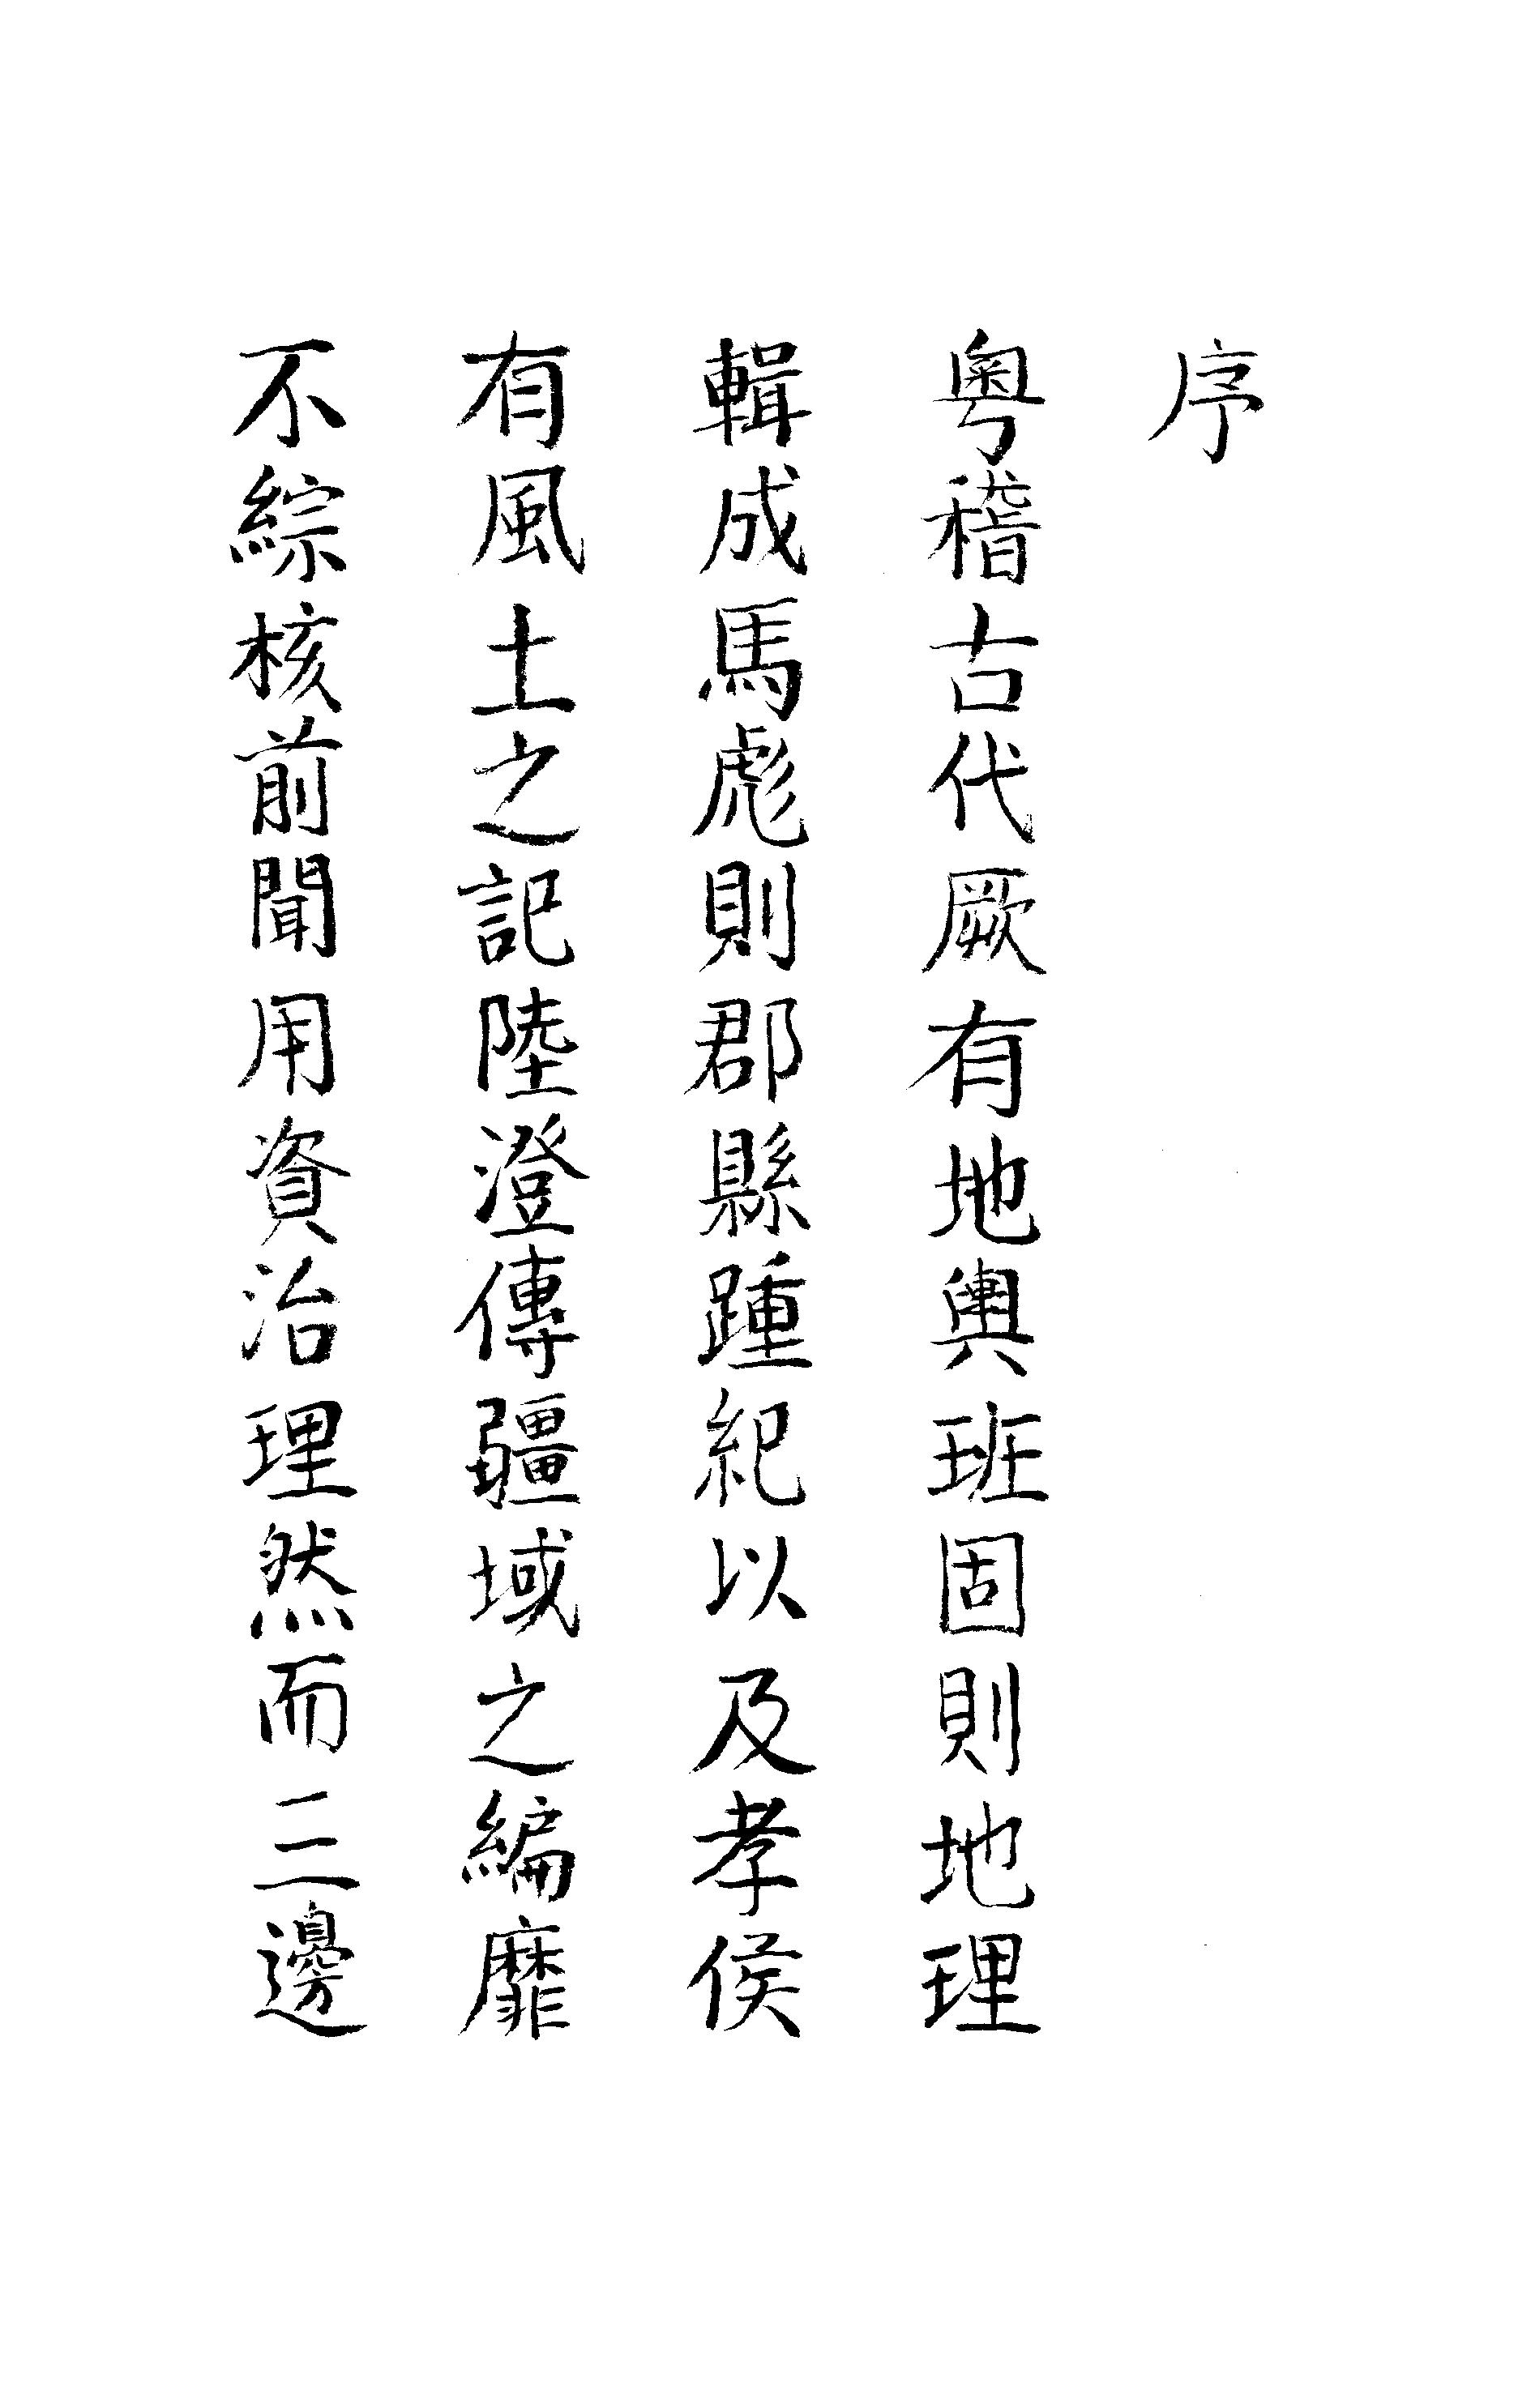 序
粵稽古代厥有地輿班固則地理
輯成馬彪則郡縣踵紀以及孝侯
有風土之記陸澄傳疆域之編靡
不綜核前聞用資治理然而三邊